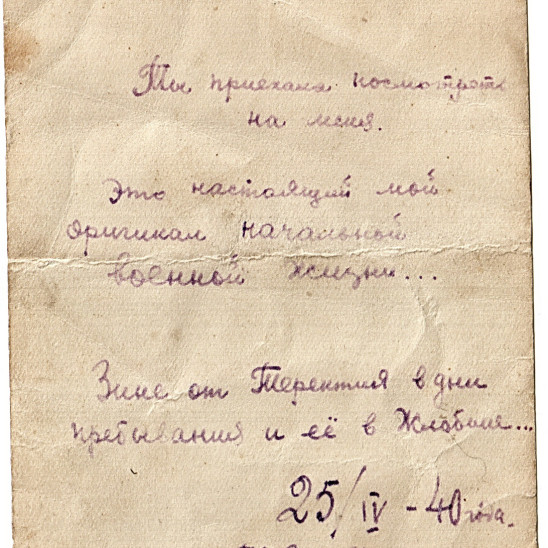 Ты приехала посмотреть
на меня.
Это настоящий мой
оригинал начальной
военной жизни...
Зине от Терентия в дни
пребывания и её в Жлобине...
25/IV - 40 года.